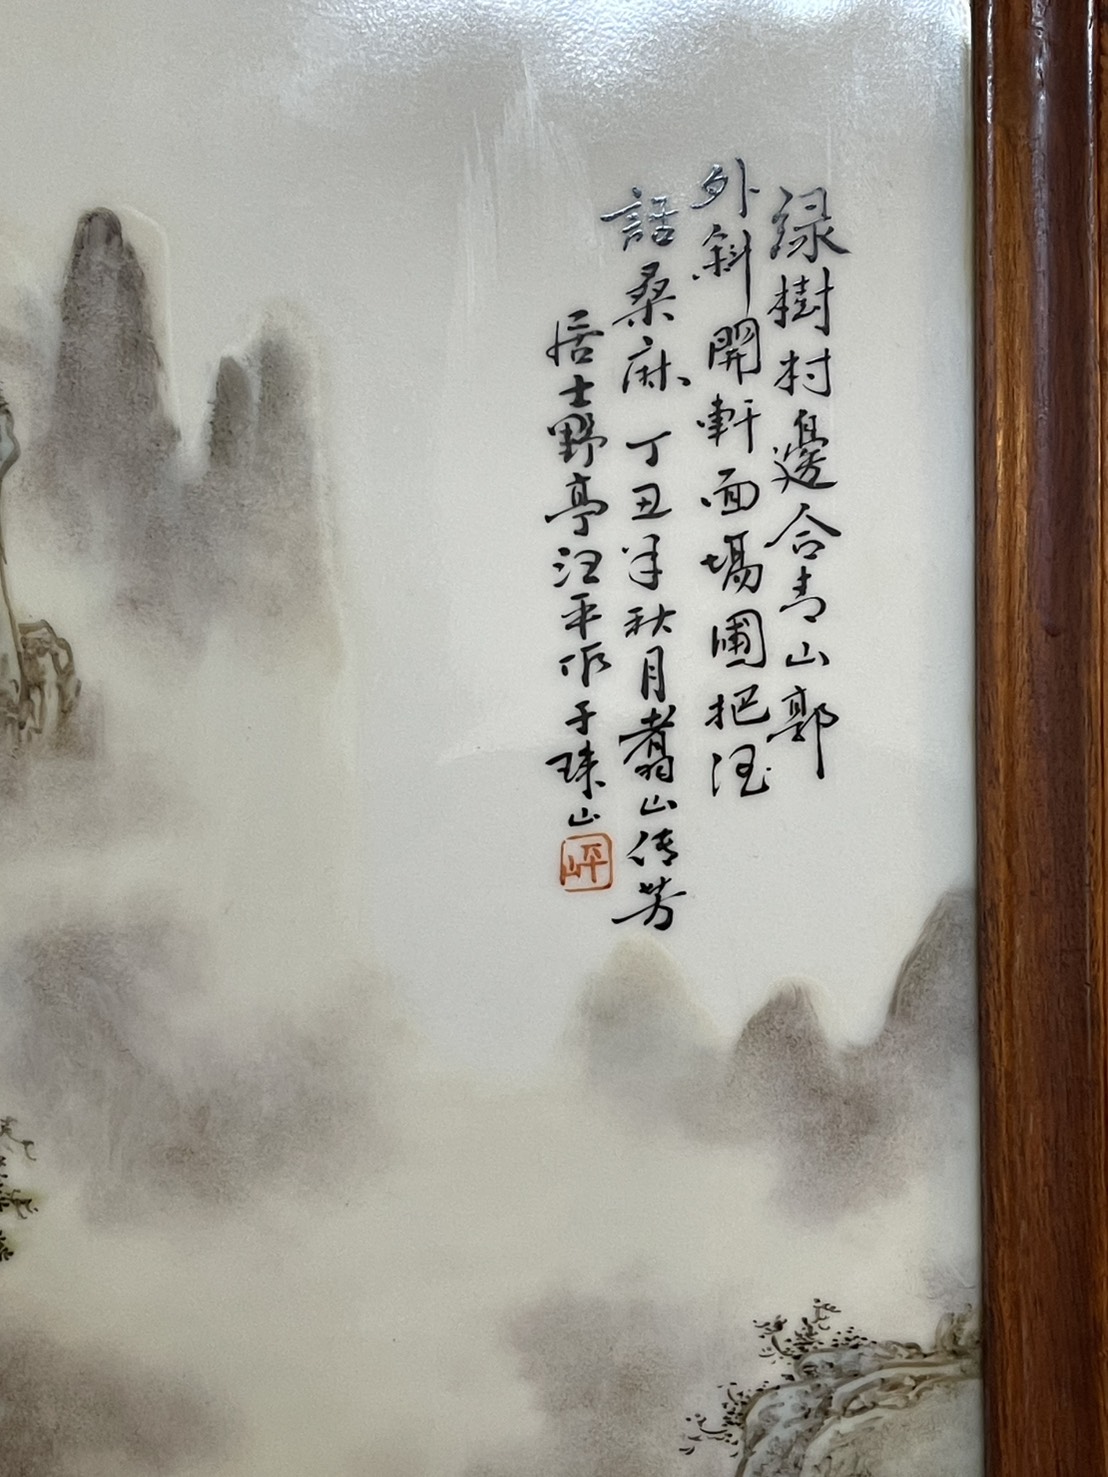 緑樹村邊合青山郭
外斜開軒面塲圃把酒
話桑麻 丁丑年秋月翥山传芳
居士野亭汪平作于珠山
岼